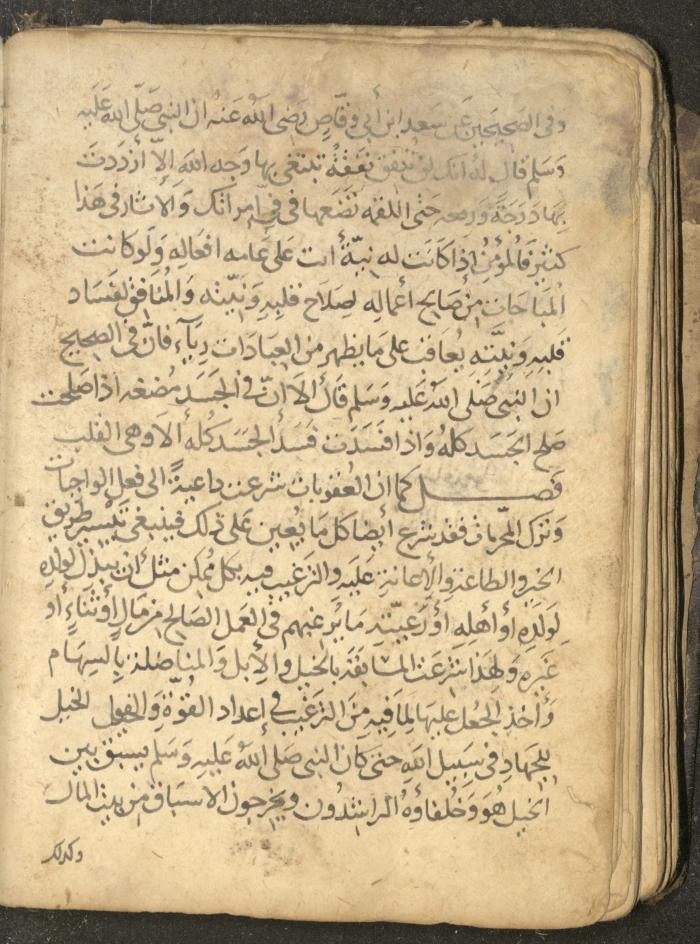 وفى الصحيحين عَن سَعد ابن أبي وقّاصٍ رَضى اللهُ عَنهُ ان النبى صَلّى الله عَليه
وَسَلم قال لهُ انك لن تنفق نفقةً تبتغى بها وَجه الله الّا أزدَدتَ
بهَا دَرَجَةً وَرفعه حَتى اللقمه تضَعها فى فِى امراتك وَالآثار فى هَذا
كثير فَالمؤمنُ اذا كانَت له نيّةٌ أتت عَلى عَامه افعاله وَلو كانت
المُباحَات مِن صَالح أعماله لِصلاح قلبِه وَنيّته وَالمُنافق لفسَاد
قلبِه وَنيّتهِ يُعاقبُ على مَا يظهر من العبَادات رِيَآءً فانّ فى الصحيح
ان النبى صَلى اللهُ عَليه وَسَلم قال ألَا انّ فى الجَسَد مُضغه اذا صَلحت
صَلح الجَسَد كلهُ وَاذا فسَدَت فسَد الجَسَد كُله ألَا وهى القلب
فصل كما ان العُقوبات شرعت داعيةً الى فعل الواجبات
وَترك المحرمات فقد شرع أيضا كل مَا يُعين عَلى ذلك فينبغى تيسير طريق
الخير والطاعة والإعانة عَليه والترغيب فيه بكل مُمكن مثل أن يبذل لولدِه
لِوَلدِه أو أهلِه أو رَعيّته مَا يُرغبهم فى العَمل الصَالح من مَالٍ أو ثناءٍ أو
غيره وَلهذا شرعَت المسَابقة بالخيل والإبل وَالمناضلة بالسِهام
وَأخذ الجُعل عليهَا لِمَا فيهِ مِنَ الترغيب فى إعداد القُوّة وَالخيل للخيل
للجهاد فى سَبيل اللهِ حتى كان النبى صَلى اللهُ عَليه وَسَلم يسبق بين
الخيل هُوَ وَخُلفاؤهُ الراشدُون ويخرجون الاسبَاق مِن بيت المال
وكذلك